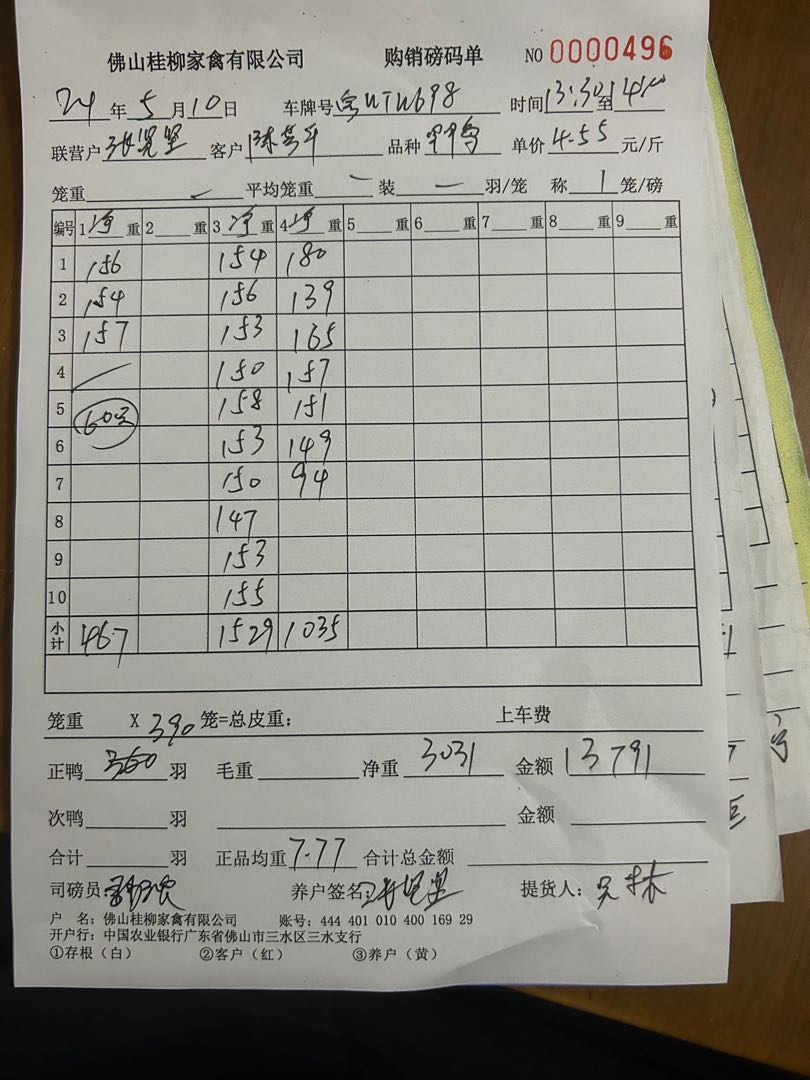 佛山桂柳家禽有限公司 购销磅码单 NO 0000496
24 年 5 月 10 日 车牌号 时间 13:30 至
联营户 客户 品种 单价 4.55 元/斤
笼重 平均笼重 装 一 羽/笼 称 1 笼/磅
编号 1 净 重 2 重 3 净 重 4 净 重 5 重 6 重 7 重 8 重 9 重
1 156 154 180
2 154 156 139
3 157 153 165
4 150 157
5 158 151
6 153 149
7 150 94
8 147
9 153
10 155
小计 467 1529 1035
笼重 X 390 笼=总皮重: 上车费
正鸭 羽 毛重 净重 3031 金额 13791
次鸭 羽 金额
合计 羽 正品均重 7.77 合计总金额
司磅员 养户签名: 提货人:
户 名: 佛山桂柳家禽有限公司 账号: 444 401 010 400 169 29
开户行: 中国农业银行广东省佛山市三水区三水支行
①存根(白) ②客户(红) ③养户(黄)